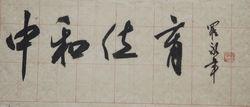 中和位育